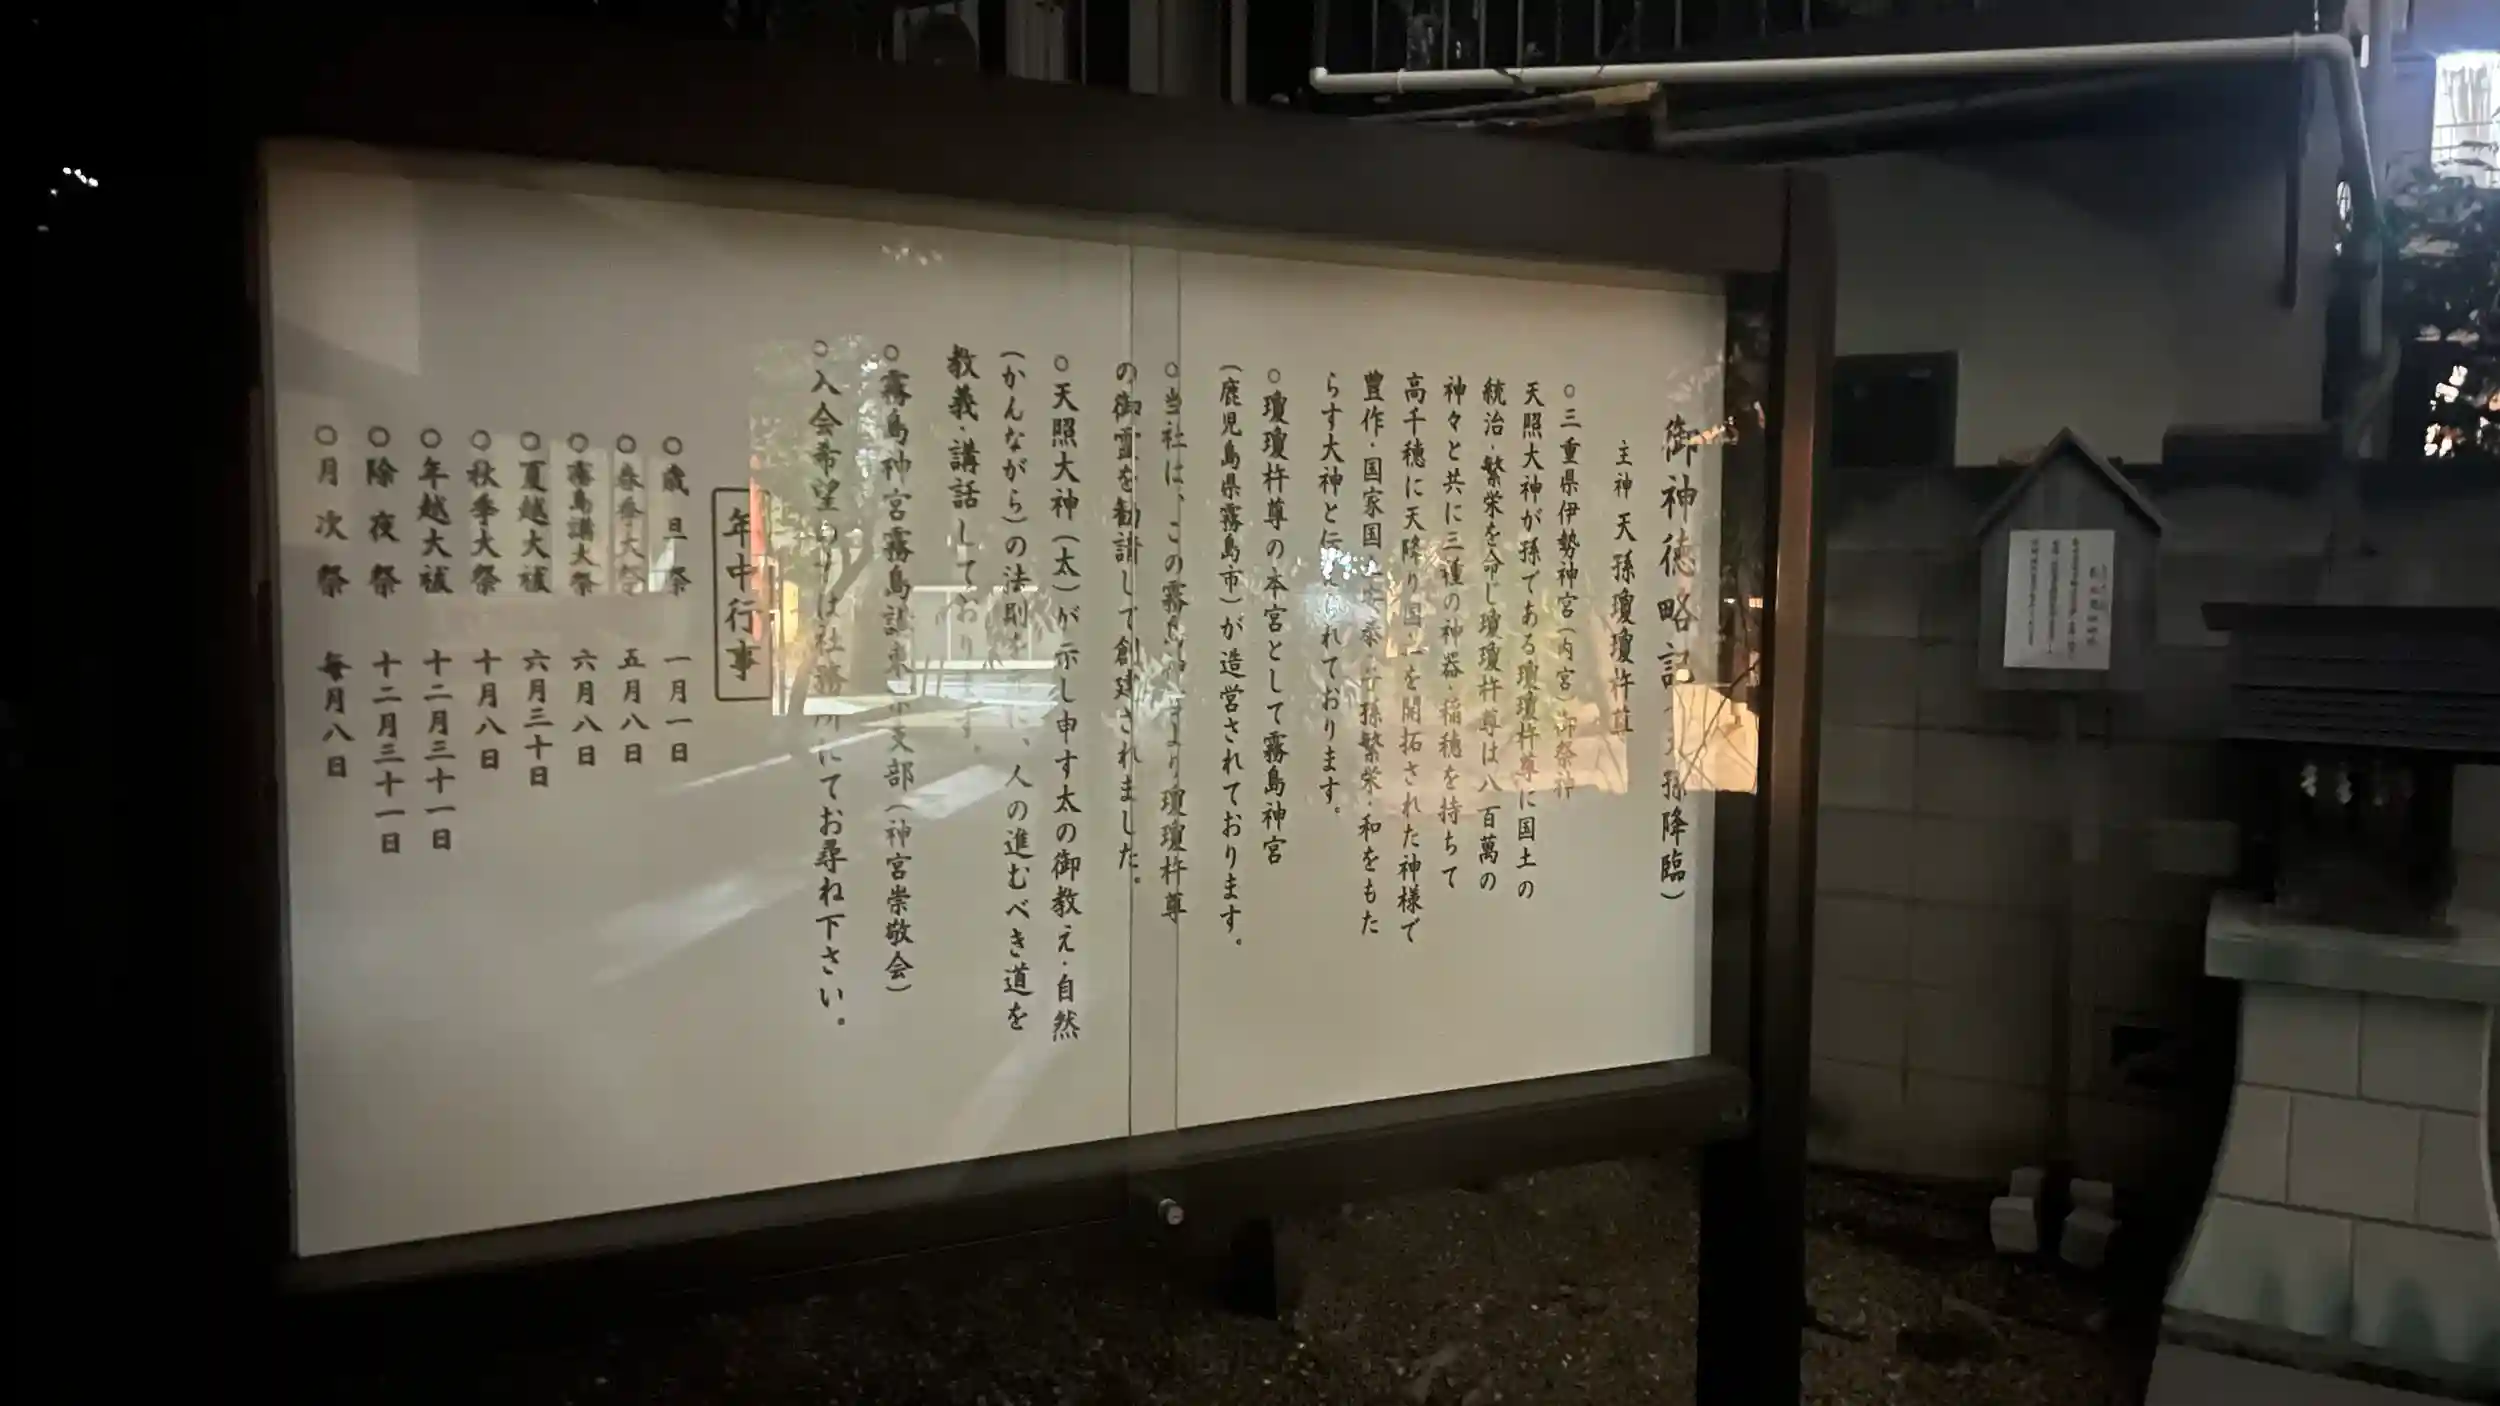 御神徳略記(天孫降臨)
主神 天孫瓊瓊杵尊
○三重県伊勢神宮(内宮)御祭神
天照大神が孫である瓊瓊杵尊に国土の
統治・繁栄を命じ瓊瓊杵尊は八百萬の
神々と共に三種の神器・稲穂を持ちて
高千穂に天降り国土を開拓された神様で
豊作・国家国土安泰・子孫繁栄・和をもた
らす大神と伝えられております。
○瓊瓊杵尊の本宮として霧島神宮
(鹿児島県霧島市)が造営されております。
○当社は、この霧島神宮より瓊瓊杵尊
の御霊を勧請して創建されました。
○天照大神(太)が示し申す太の御教え・自然
(かんながら)の法則を に、人の進むべき道を
教義・講話しております。
○霧島神宮霧島講東京支部(神宮崇敬会)
○入会希望 は社務所にてお尋ね下さい。
年中行事
○歳旦祭 一月一日
○春季大祭 五月八日
○霧島講大祭 六月八日
○夏越大祓 六月三十日
○秋季大祭 十月八日
○年越大祓 十二月三十一日
○除夜祭 十二月三十一日
○月次祭 毎月八日